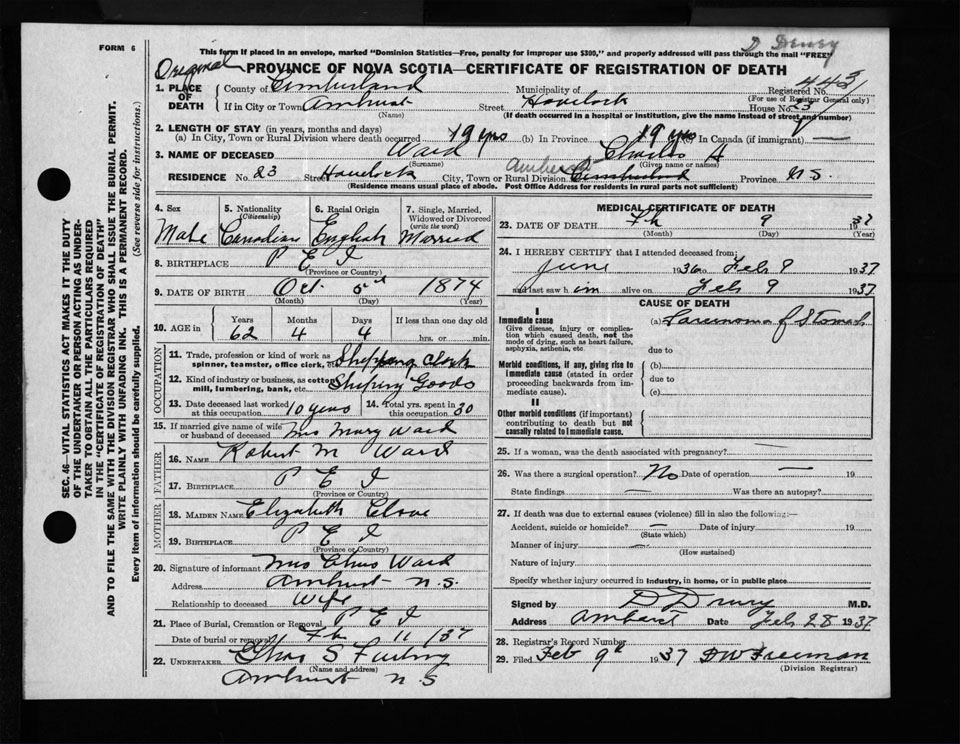 FORM 6
This form if placed in an envelope, marked "Dominion Statistics—Free, penalty for improper use $300," and properly addressed will pass through the mail "FREE"
D Drury
Original
PROVINCE OF NOVA SCOTIA—CERTIFICATE OF REGISTRATION OF DEATH
1. PLACE OF DEATH
County of Cumberland Municipality of Registered No. 443
(For use of Registrar General only)
If in City or Town Amherst Street Havelock House No. 23
(Name) (If death occurred in a hospital or institution, give the name instead of street and number)
2. LENGTH OF STAY (in years, months and days)
(a) In City, Town or Rural Division where death occurred 19 yrs (b) In Province 19 yrs (c) In Canada (if immigrant) —
3. NAME OF DECEASED Ward Charles A
(Surname) (Given name or names)
RESIDENCE No. 23 Street Havelock City, Town or Rural Division Amherst Cumberland Province N.S.
(Residence means usual place of abode. Post Office Address for residents in rural parts not sufficient)
4. Sex Male
5. Nationality (Citizenship) Canadian
6. Racial Origin English
7. Single, Married, Widowed or Divorced (write the word) Married
8. BIRTHPLACE P E I
(Province or Country)
9. DATE OF BIRTH Oct. 1874
(Month) (Day) (Year)
10. AGE in Years 62 Months 4 Days 4 If less than one day old
hrs. or min.
OCCUPATION
11. Trade, profession or kind of work as spinner, teamster, office clerk, etc. Shipping Clerk
12. Kind of industry or business, as cotton mill, lumbering, bank, etc. Shiping Goods
13. Date deceased last worked at this occupation 10 years
14. Total yrs. spent in this occupation 30
15. If married give name of wife or husband of deceased Mrs Mary Ward
FATHER
16. NAME Robert M Ward
17. BIRTHPLACE P E I
(Province or Country)
MOTHER
18. MAIDEN NAME Elizabeth
19. BIRTHPLACE P E I
(Province or Country)
20. Signature of informant Mrs Chas Ward
Address Amherst N.S.
Relationship to deceased Wife
21. Place of Burial, Cremation or Removal P E I
Date of burial or removal Fb 11 / 37
22. UNDERTAKER Chas S
(Name and address)
Amherst N S
MEDICAL CERTIFICATE OF DEATH
23. DATE OF DEATH Fb 9 1937
(Month) (Day) (Year)
24. I HEREBY CERTIFY that I attended deceased from:
June 1936 to Feb 9 1937
and last saw him alive on Feb 9 1937
CAUSE OF DEATH
I
Immediate cause
Give disease, injury or complication which caused death, not the mode of dying, such as heart failure, asphyxia, asthenia, etc.
(a) Carcinoma of Stomach
due to
Morbid conditions, if any, giving rise to immediate cause (stated in order proceeding backwards from immediate cause).
(b)
due to
(c)
II
Other morbid conditions (if important) contributing to death but not causally related to immediate cause.
25. If a woman, was the death associated with pregnancy?
26. Was there a surgical operation? No Date of operation — 19
State findings — Was there an autopsy?
27. If death was due to external causes (violence) fill in also the following:—
Accident, suicide or homicide? — Date of injury 19
(State which)
Manner of injury —
(How sustained)
Nature of injury
Specify whether injury occurred in industry, in home, or in public place
Signed by D Drury M.D.
Address Amherst Date Feb 28 1937
28. Registrar's Record Number
29. Filed Feb 9th 1937 F W Freeman
(Division Registrar)
SEC. 46—VITAL STATISTICS ACT MAKES IT THE DUTY
OF THE UNDERTAKER OR PERSON ACTING AS UNDERTAKER
TO OBTAIN ALL THE PARTICULARS REQUIRED
IN THE "CERTIFICATE OF REGISTRATION OF DEATH"
AND TO FILE THE SAME WITH THE DIVISION REGISTRAR WHO SHALL ISSUE THE BURIAL PERMIT.
WRITE PLAINLY WITH UNFADING INK. THIS IS A PERMANENT RECORD.
Every item of information should be carefully supplied. (See reverse side for instructions.)